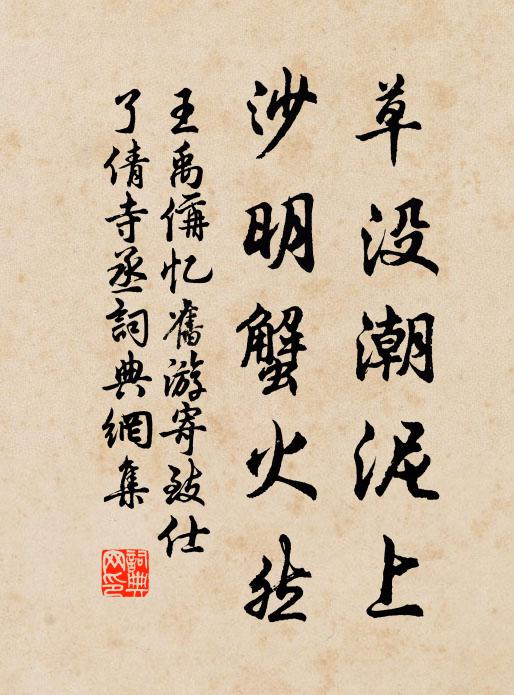 草没潮泥上
沙明蟹火然
王禹偁忆舊游寄致仕
了倩寺丞詞典網集
詞典網印